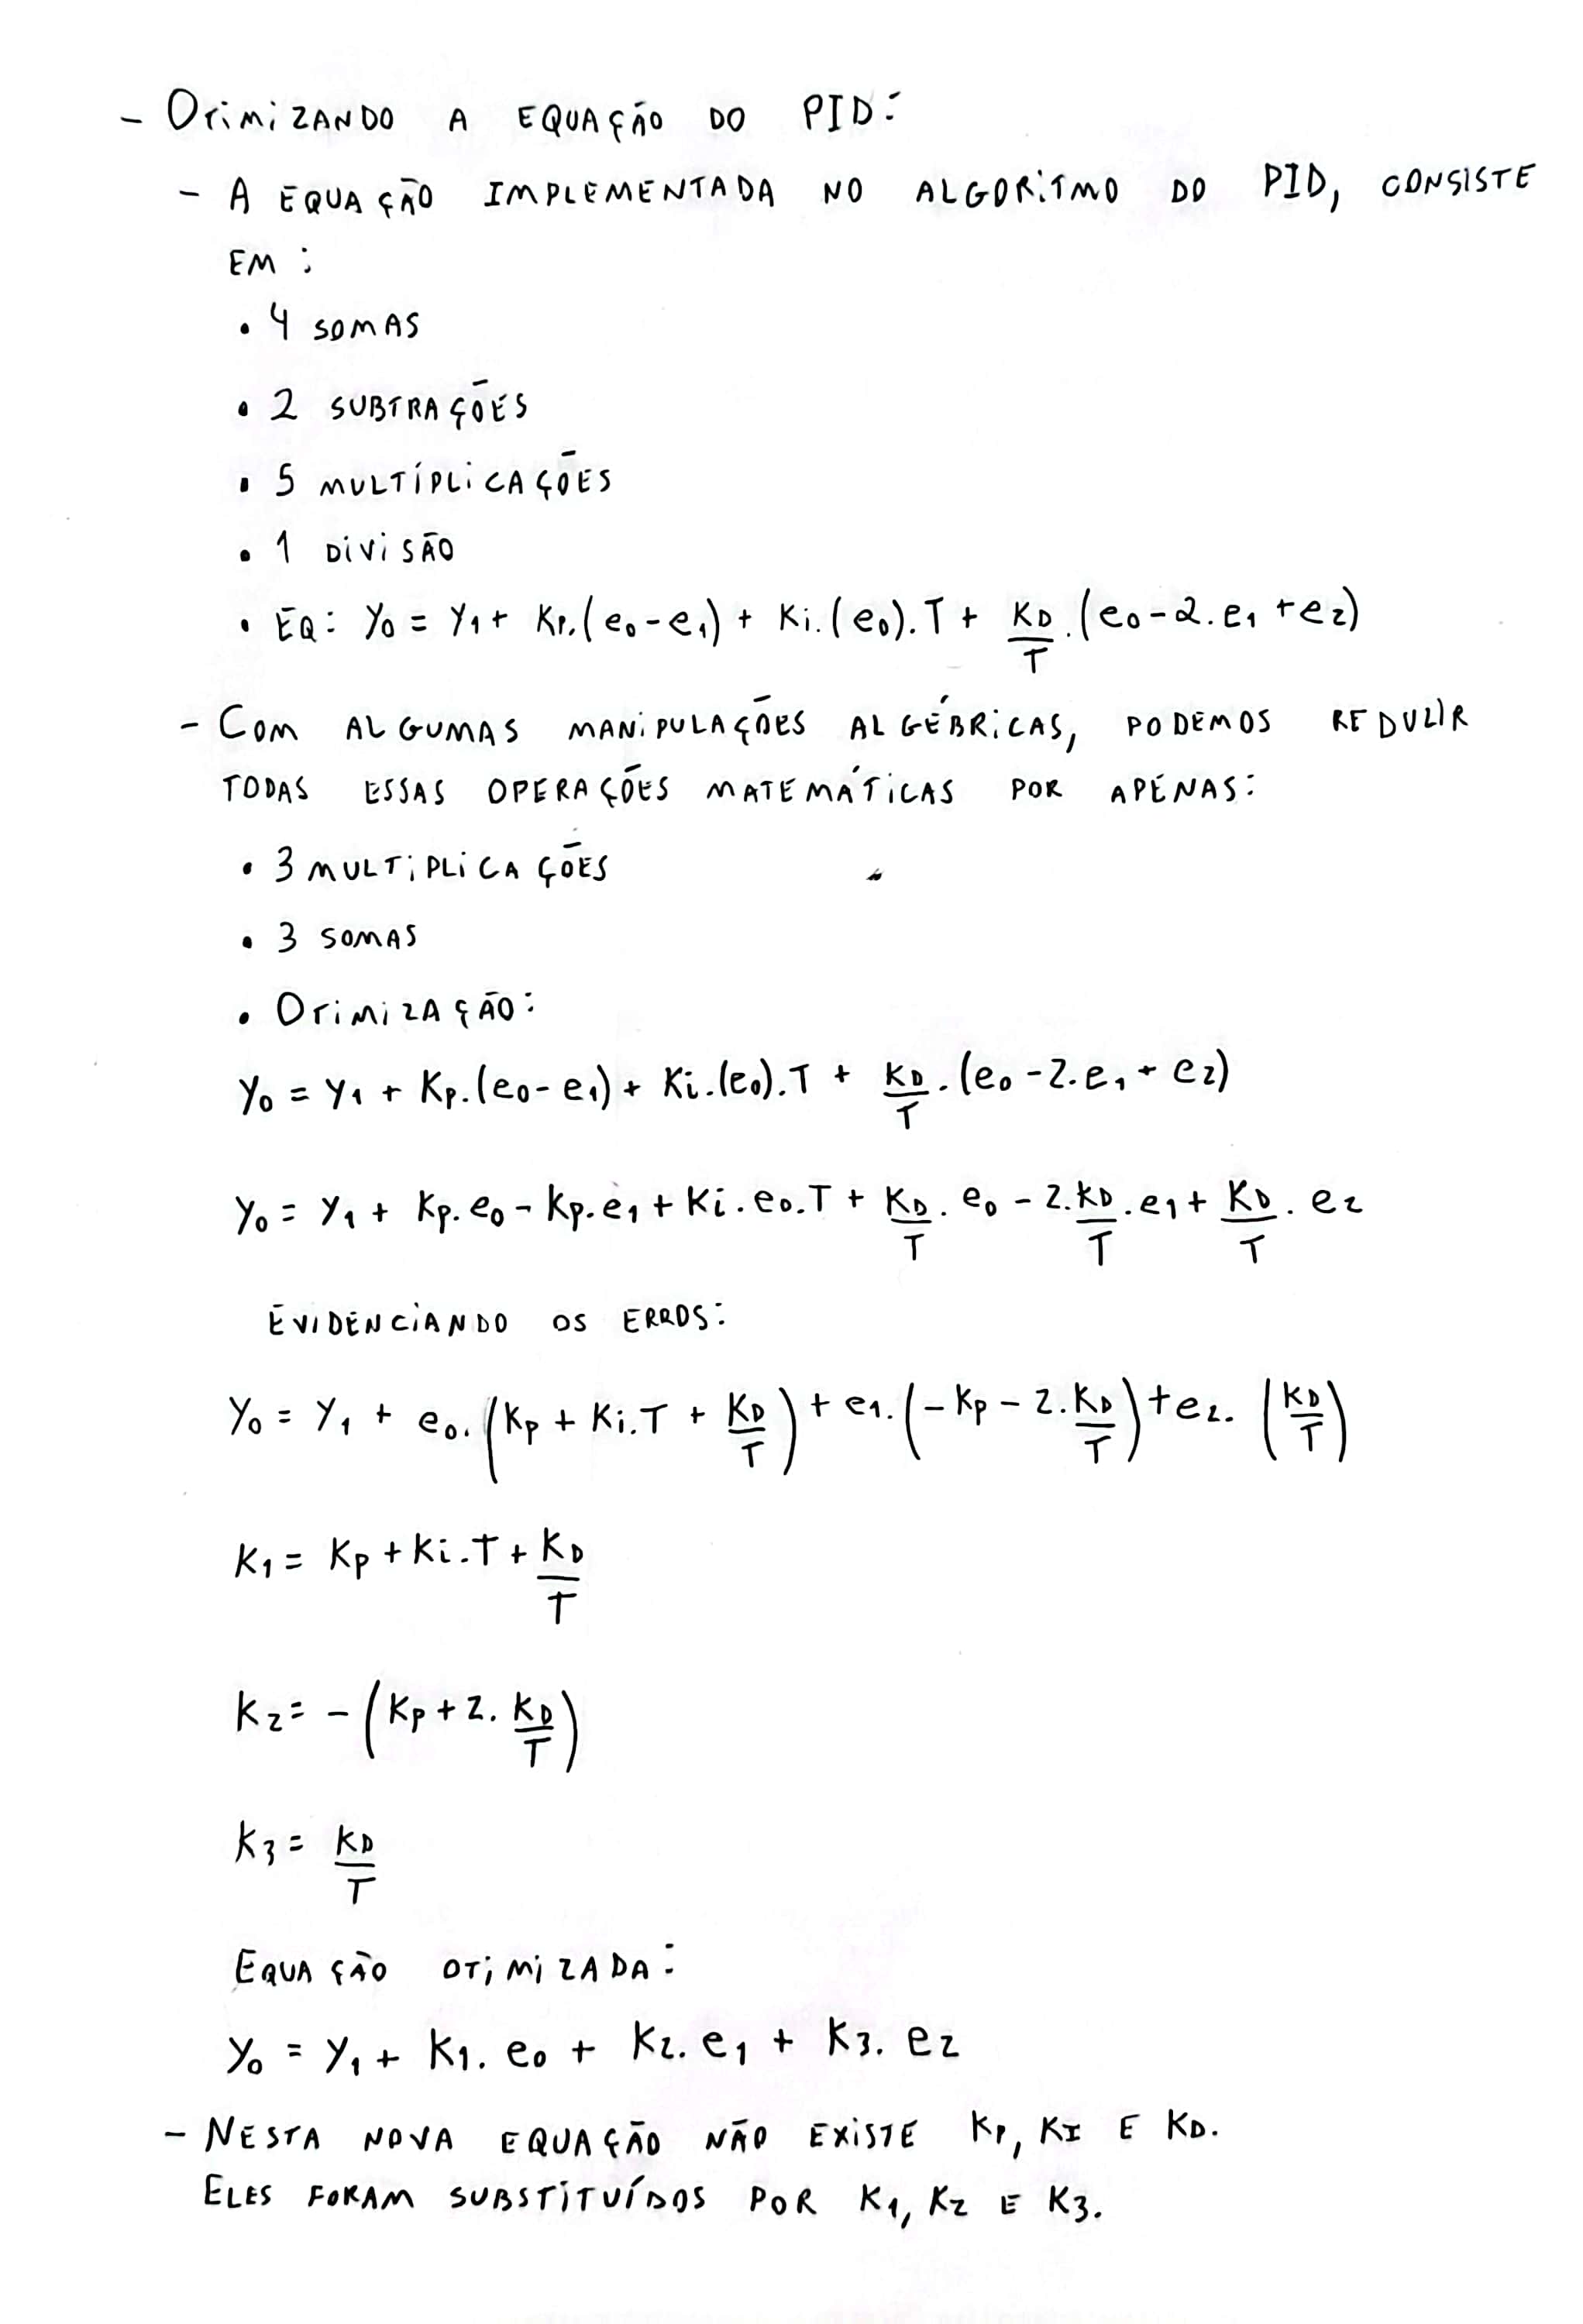 - OTIMIZANDO A EQUAÇÃO DO PID:
- A EQUAÇÃO IMPLEMENTADA NO ALGORITMO DO PID, CONSISTE
EM:
• 4 SOMAS
• 2 SUBTRAÇÕES
• 5 MULTÍPLICAÇÕES
• 1 DIVISÃO
• EQ: Y0 = Y1 + KP.(e0-e1) + Ki.(e0).T + KD/T.(e0-2.e1+e2)
- COM ALGUMAS MANIPULAÇÕES ALGÉBRICAS, PODEMOS REDUZIR
TODAS ESSAS OPERAÇÕES MATEMÁTICAS POR APENAS:
• 3 MULTIPLICAÇÕES
• 3 SOMAS
• OTIMIZAÇÃO:
Y0 = Y1 + Kp.(e0-e1) + Ki.(e0).T + KD/T.(e0-2.e1+e2)
Y0 = Y1 + Kp.e0 - Kp.e1 + Ki.e0.T + KD/T.e0 - 2.KD/T.e1 + KD/T.e2
EVIDENCIANDO OS ERROS:
Y0 = Y1 + e0.(Kp + Ki.T + KD/T) + e1.(-Kp - 2.KD/T) + e2.(KD/T)
K1 = Kp + Ki.T + KD/T
K2 = -(Kp + 2.KD/T)
K3 = KD/T
EQUAÇÃO OTIMIZADA:
Y0 = Y1 + K1.e0 + K2.e1 + K3.e2
- NESTA NOVA EQUAÇÃO NÃO EXISTE KP, KI E KD.
ELES FORAM SUBSTITUÍDOS POR K1, K2 E K3.